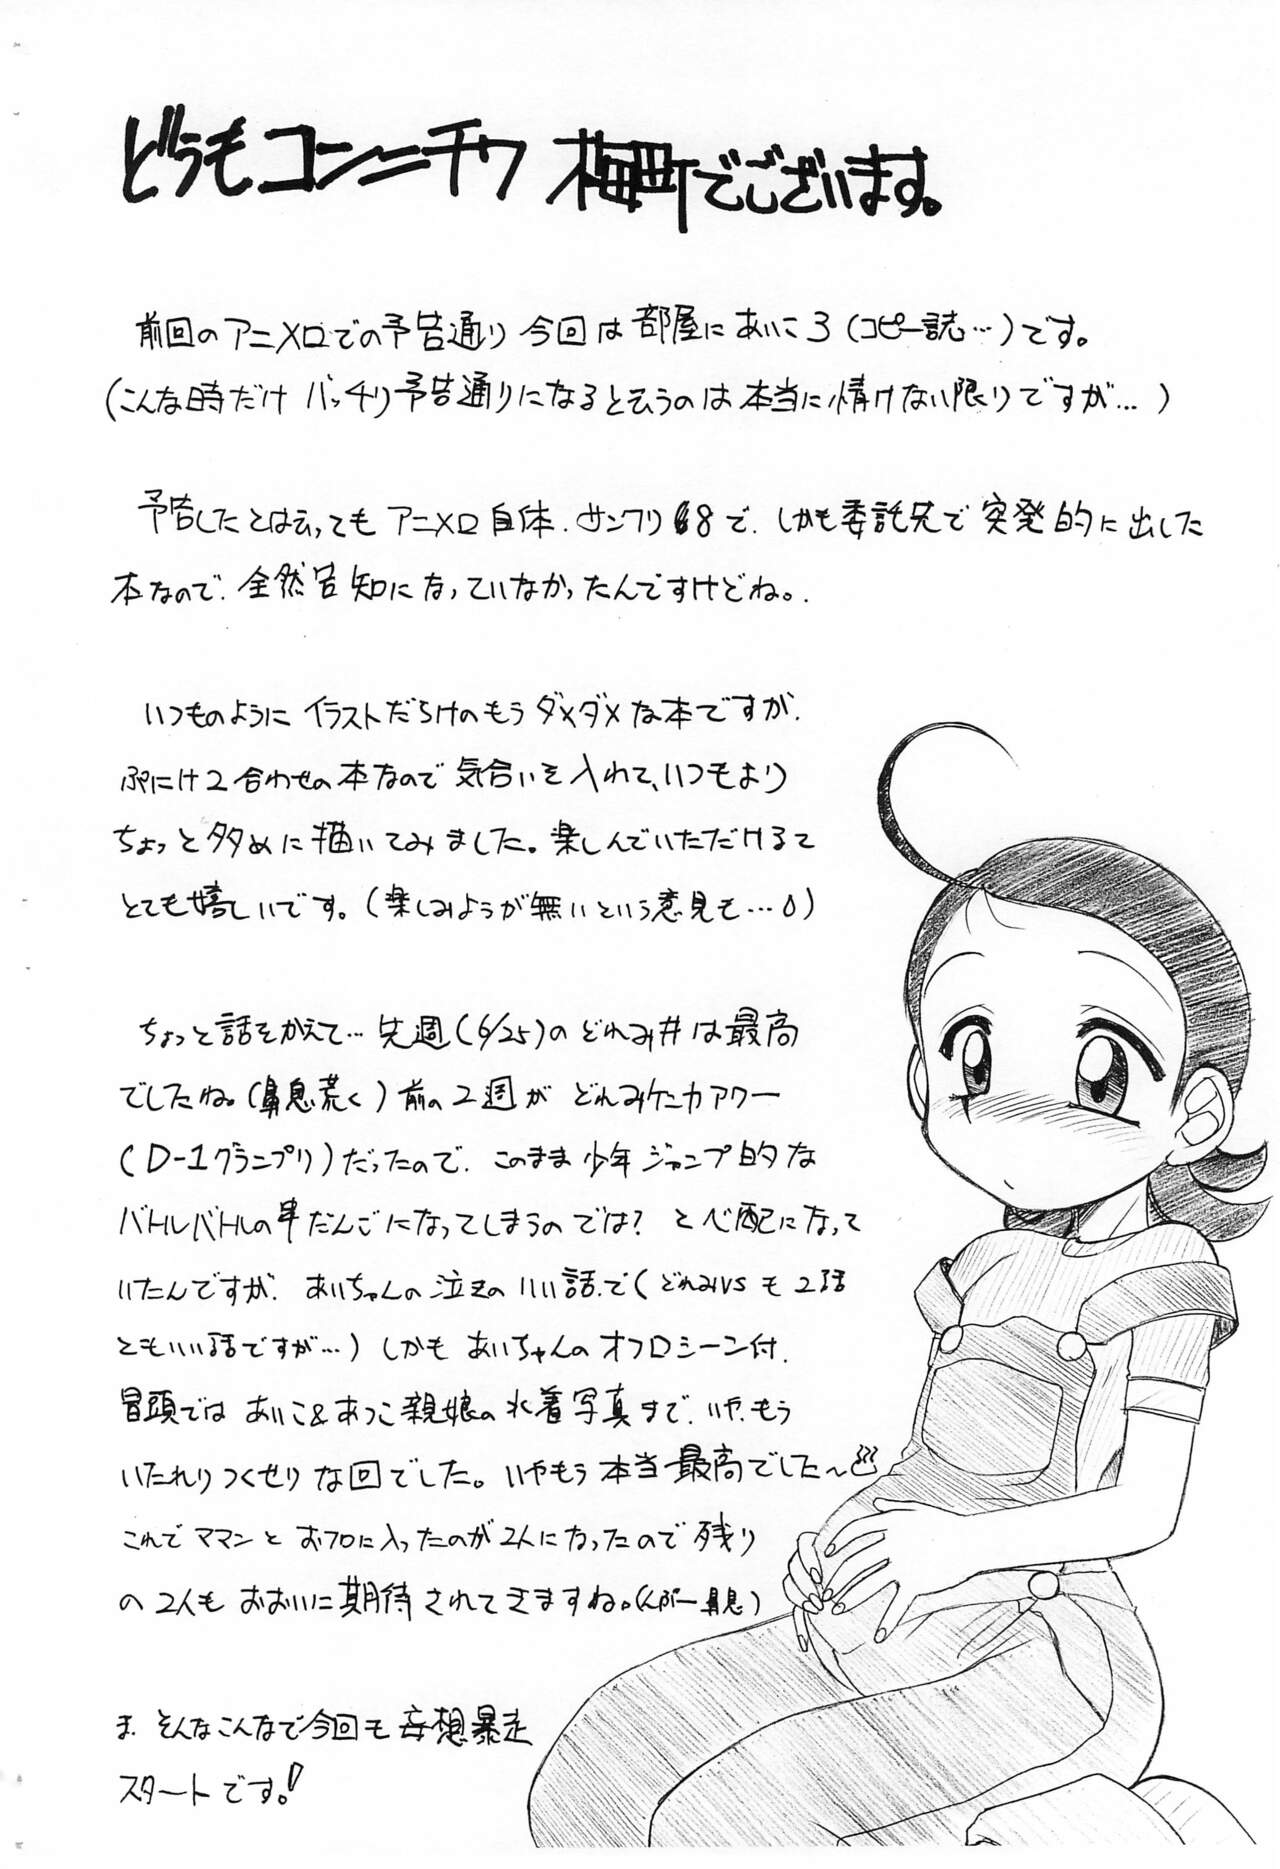 どうもコンニチワ 梅町でございます。
前回のアニメロでの予告通り今回は部屋にあいこ3(コピー誌…)です。
(こんな時だけバッチリ予告通りになると云うのは本当に情けない限りですが…)
予告したとは云ってもアニメロ自体、サンクリ8で、しかも委託先で突発的に出した
本なので、全然告知になっていなかったんですけどね。
いつものようにイラストだらけのもうダメダメな本ですが、
ぷにけ2合わせの本なので気合いを入れて、いつもより
ちょっと多めに描いてみました。楽しんでいただけると
とても嬉しいです。(楽しみようが無いという意見も…)
ちょっと話をかえて…先週(6/25)のどれみ#は最高
でしたね。(鼻息荒く)前の2週がどれみケニカアワー
(D-1グランプリ)だったので、このまま少年ジャンプ的な
バトルバトルの串だんごになってしまうのでは?と心配になって
いたんですが、あいちゃんの泣きのいい話で(どれみvsも2話
ともいい話ですが…)しかもあいちゃんのオフロシーン付、
冒頭ではあいこ&あつこ親娘の水着写真まで、いや、もう
いたれりつくせりな回でした。いやもう本当最高でした〜
これでママンとおフロに入ったのが2人になったので残り
の2人もおおいに期待されてきますね。(んぷー鼻息)
ま、そんなこんなで今回も妄想暴走
スタートです!